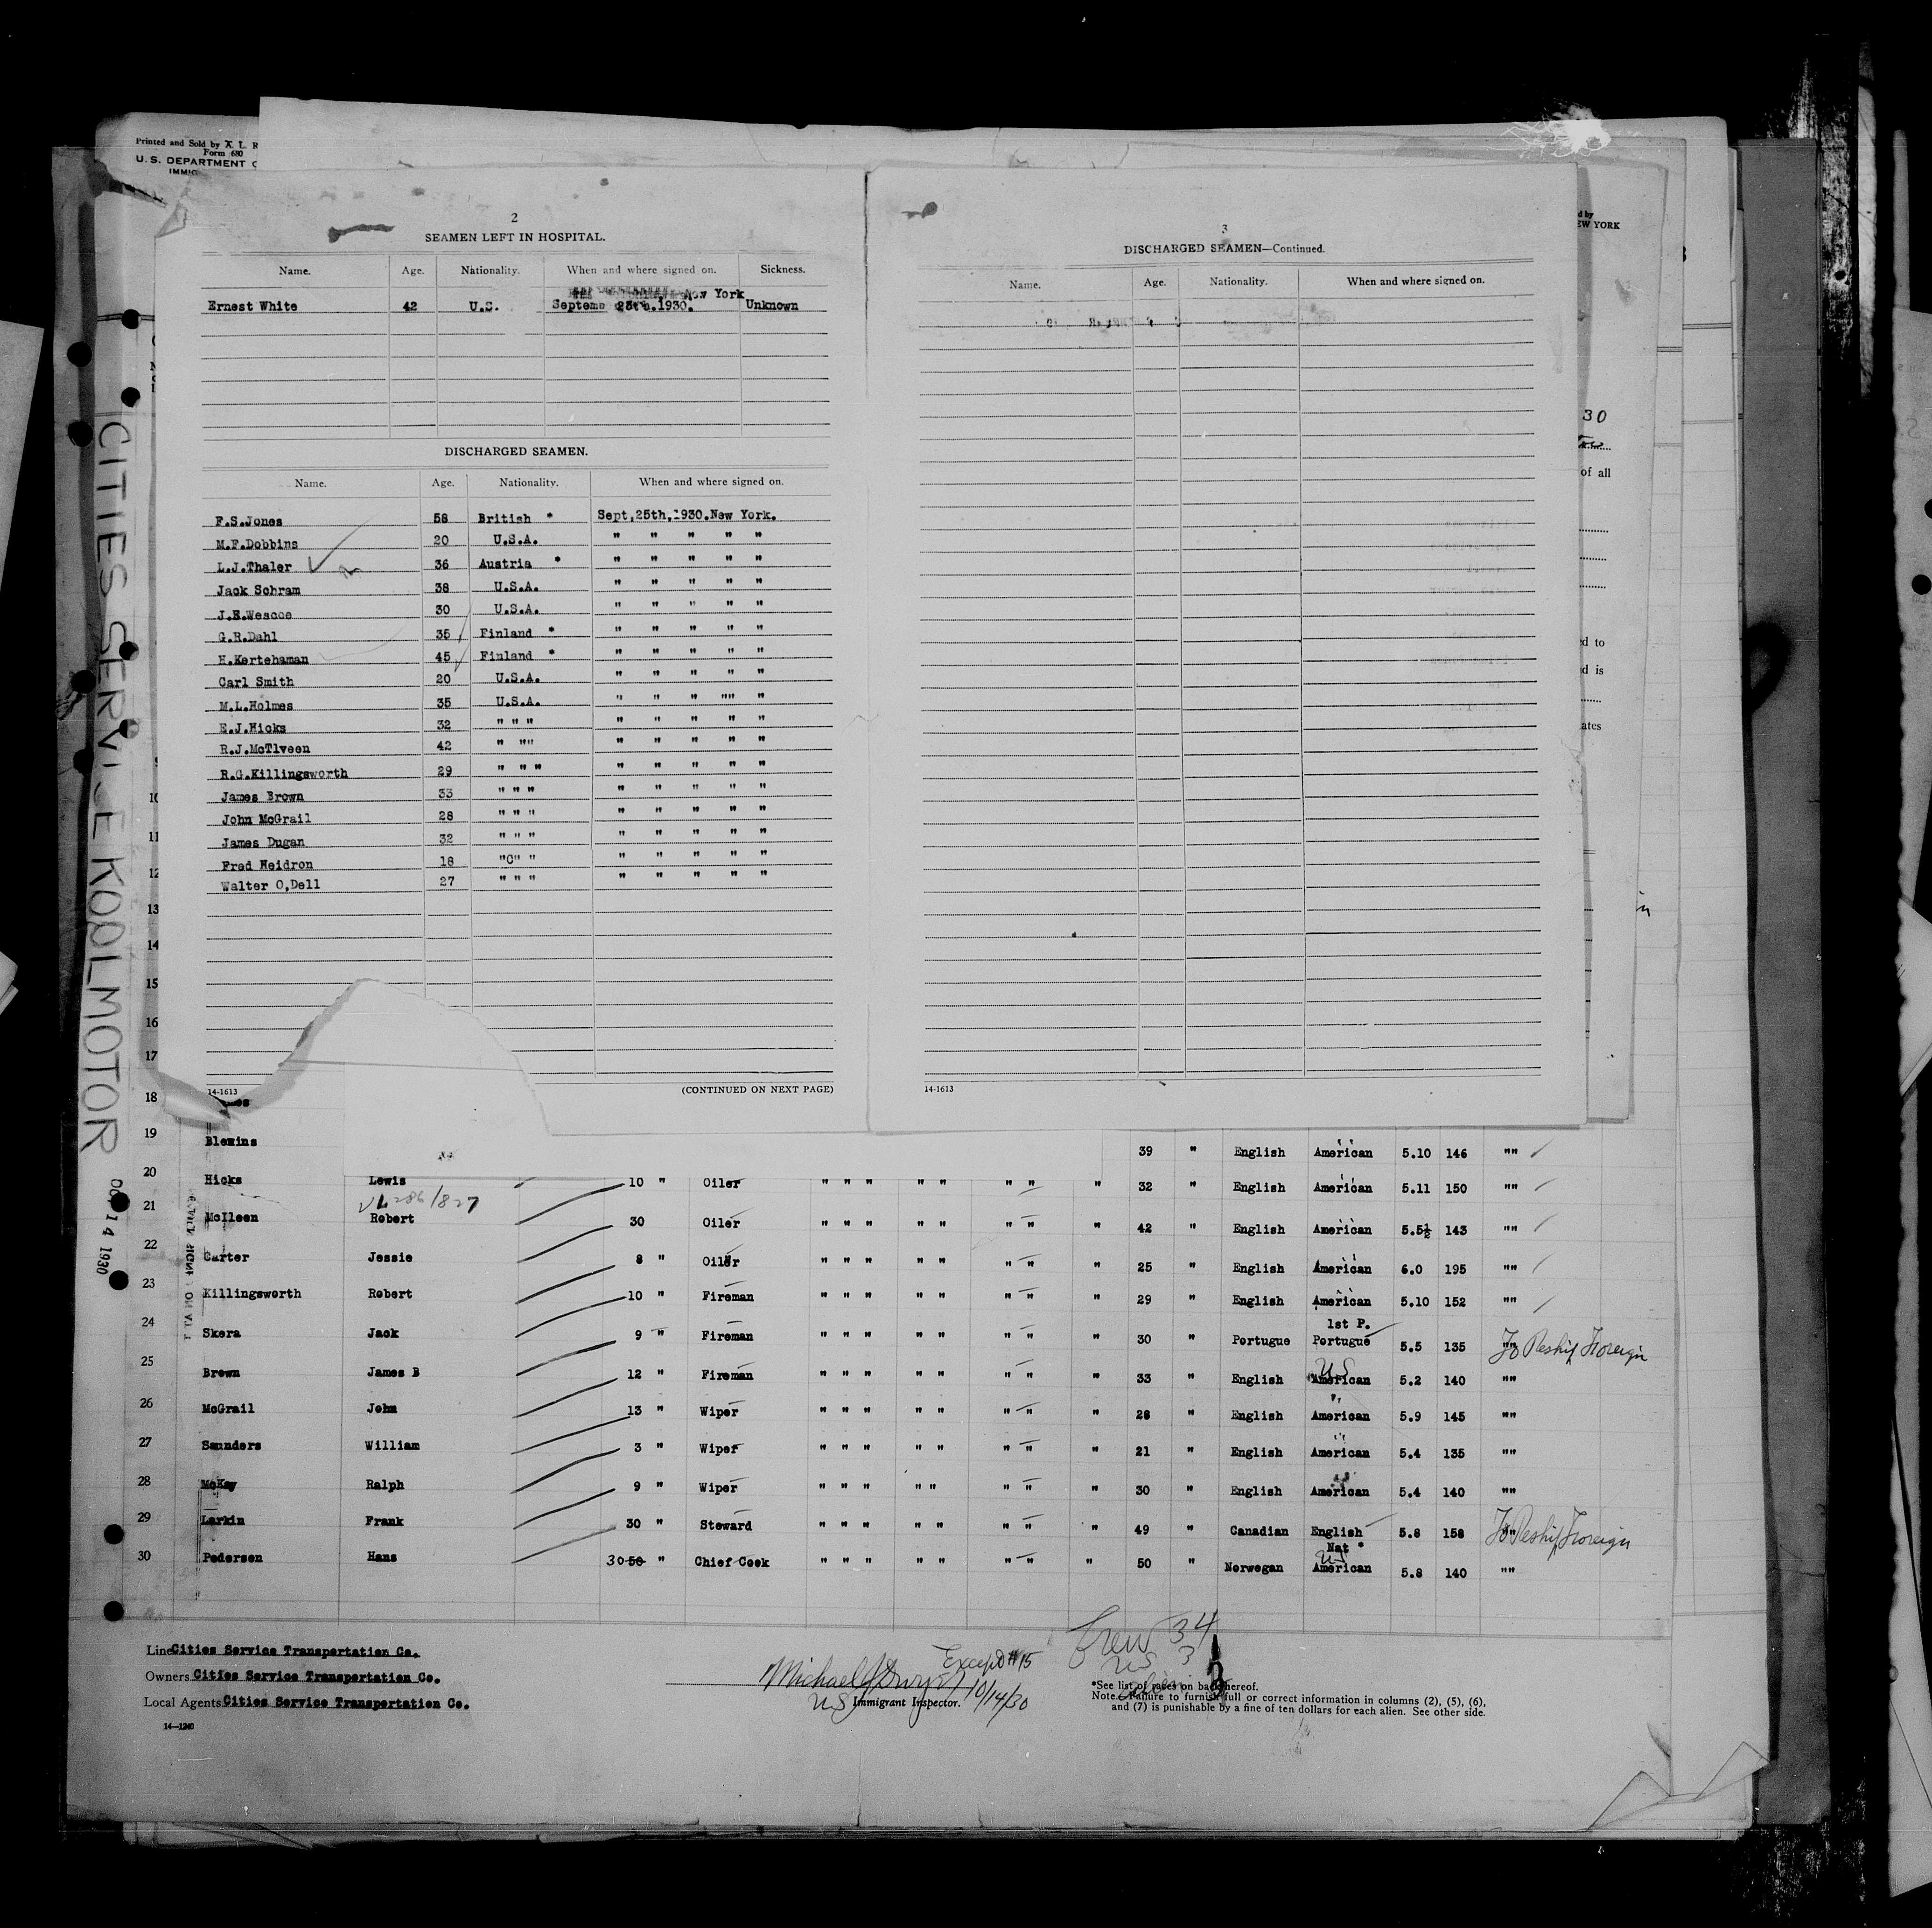 Printed and Sold by A. L. R
Form 680
U.S. DEPARTMENT O
IMMIG
2
SEAMEN LEFT IN HOSPITAL.
Name. Age. Nationality. When and where signed on. Sickness.
New York
Ernest White 42 U.S. Septem 25th.1930. Unknown
DISCHARGED SEAMEN.
Name. Age. Nationality. When and where signed on.
F.S.Jones 58 British * Sept,25th,1930.New York.
M.F.Dobbins 20 U.S.A. " " " " "
L.J.Thaler 36 Austria * " " " " "
Jack Schram 38 U.S.A. " " " " "
J.E.Wescoe 30 U.S.A. " " " " "
G.R.Dahl 35 Finland * " " " " "
H.Kertehaman 45 Finland * " " " " "
Carl Smith 20 U.S.A. " " " " "
M.L.Holmes 35 U.S.A. " " " "" "
E.J.Hicks 32 " " " " " " " "
R.J.McTlveen 42 " "" " " " " "
R.G.Killingsworth 29 " " " " " " " "
James Brown 33 " " " " " " " "
John McGrail 28 " " " " " " " "
James Dugan 32 " " " " " " " "
Fred Heidron 18 "C" " " " " " "
Walter O,Dell 27 " " " " " " " "
14-1613 (CONTINUED ON NEXT PAGE)
3
DISCHARGED SEAMEN—Continued.
Name. Age. Nationality. When and where signed on.
14-1613
d by
EW YORK
30
of all
d to
d is
ates
CITIES SERVICE KOOLMOTOR
OCT 14 1930
10
11
12
13
14
15
16
17
18
19 Blewins 39 " English American 5.10 146 ""
20 Hicks Lewis 10 " Oiler " " " " " " " " 32 " English American 5.11 150 ""
21 McIleen Robert 30 Oiler " " " " " " " " 42 " English American 5.5½ 143 ""
22 Carter Jessie 8 " Oiler " " " " " " " " 25 " English American 6.0 195 ""
23 Killingsworth Robert 10 " Fireman " " " " " " " " 29 " English American 5.10 152 ""
1st P.
24 Skera Jack 9 " Fireman " " " " " " " " 30 " Portugue Portugue 5.5 135 "" To Reship Foreign
US
25 Brown James B 12 " Fireman " " " " " " " " 33 " English American 5.2 140 ""
26 McGrail John 13 " Wiper " " " " " " " " 28 " English American 5.9 145 ""
27 Saunders William 3 " Wiper " " " " " " " " 21 " English American 5.4 135 ""
28 McKay Ralph 9 " Wiper " " " " " " " " 30 " English American 5.4 140 ""
29 Larkin Frank 30 " Steward " " " " " " " " 49 " Canadian English 5.8 158 "" To Reship Foreign
Nat *
US
30 Pedersen Hans 30 50 " Chief Cook " " " " " " " " 50 " Norwegan American 5.8 140 ""
Line Cities Service Transportation Co.
Owners Cities Service Transportation Co.
Local Agents Cities Service Transportation Co.
14—1240
Except #15
Michael J Dwyer 10/14/30
US Immigrant Inspector.
Crew 34
US 3
*See list of races on back hereof.
Note.—Failure to furnish full or correct information in columns (2), (5), (6),
and (7) is punishable by a fine of ten dollars for each alien. See other side.